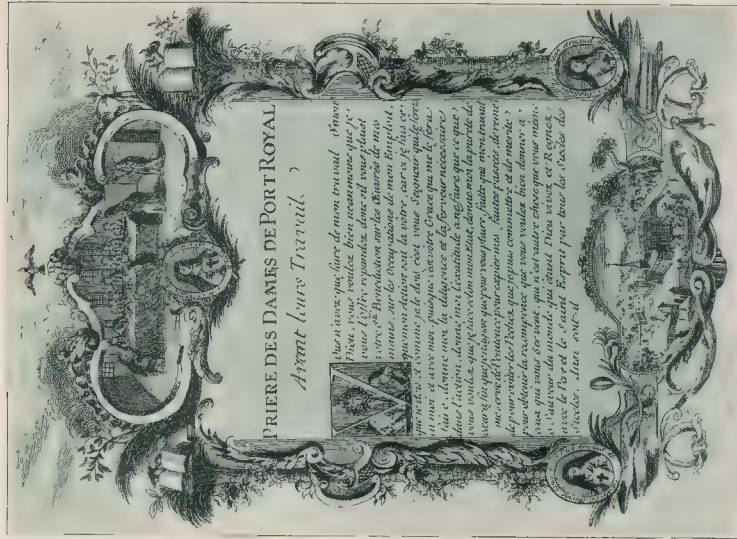 PRIERE DES DAMES DE PORT ROYAL
Avant leurs Travail.
Vous n'avez que faire de mon travail ô mon
Dieu, vous voulez bien neanmoins que je
vous l'offre, repandez donc s'il vous plaist
votre Ste Benediction sur les Œuvres de mes
mains, sur les Occupations de mon Employ,
que mon Action soit la vôtre, car si je fais ce
que je dois et comme je le dois ceci vous Seigneur qui le ferez
en moi et avec moi, puisque c'est votre Grace qui me le fera
faire, donne moi la diligence et la ferveur necessaire
dans l'action, donne moi l'exactitude a ne faire que ce que
vous voulez que je fasse selon mon Etat, donne moi la pureté de
cœur afin que je n'agisse que pour vous plaire, faite que mon travail
me serve de Penitence pour expier mes fautes passées, de remede
pour eviter les Pechez que je puis commettre et de merite
pour obtenir la recompence que vous voulez bien donner a
ceux qui vous servent, qui n'est autre chose que vous même
ô Sauveur du monde, qui etant Dieu vivez et Regnez,
avec le Pere et le Saint Esprit par tous les Siecles des
Siecles. Ainsi soit-il